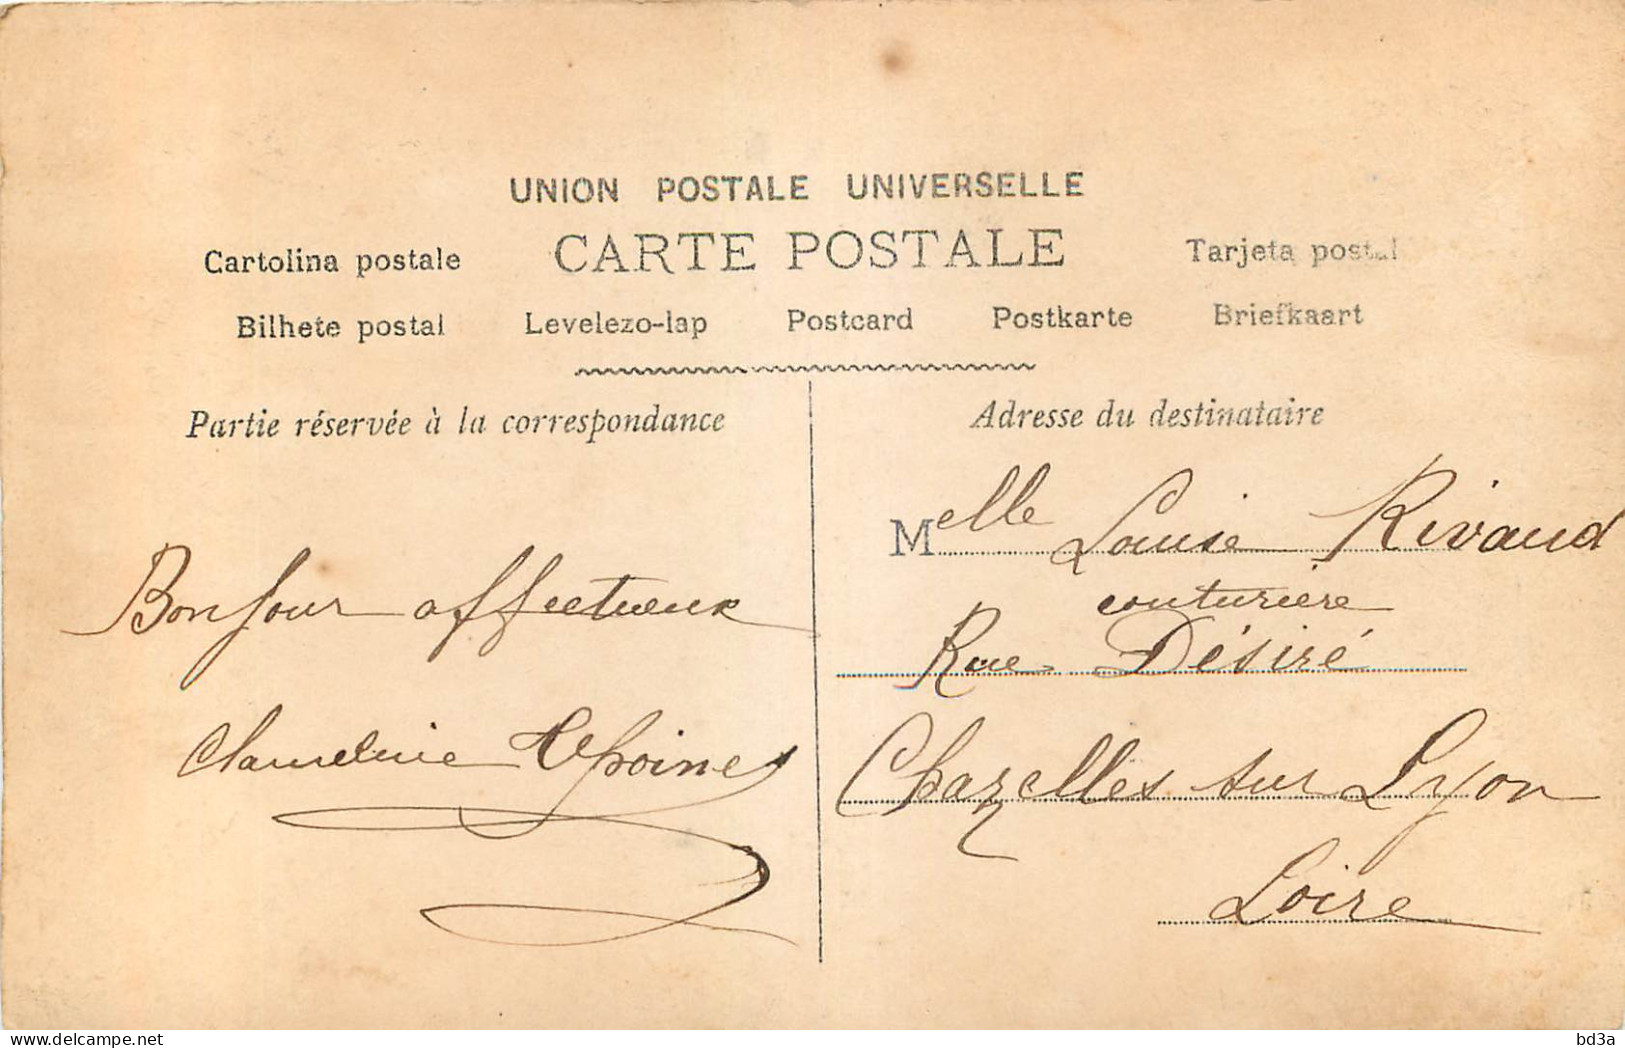 UNION POSTALE UNIVERSELLE
CARTE POSTALE
Cartolina postale
Tarjeta postal
Bilhete postal Levelezo-lap Postcard Postkarte Briefkaart
Partie réservée à la correspondance
Bonjour affectueux
Claudine
Adresse du destinataire
Melle Louise Rivaud
couturière
Rue Désiré
Chazelles sur Lyon
Loire
bd3a